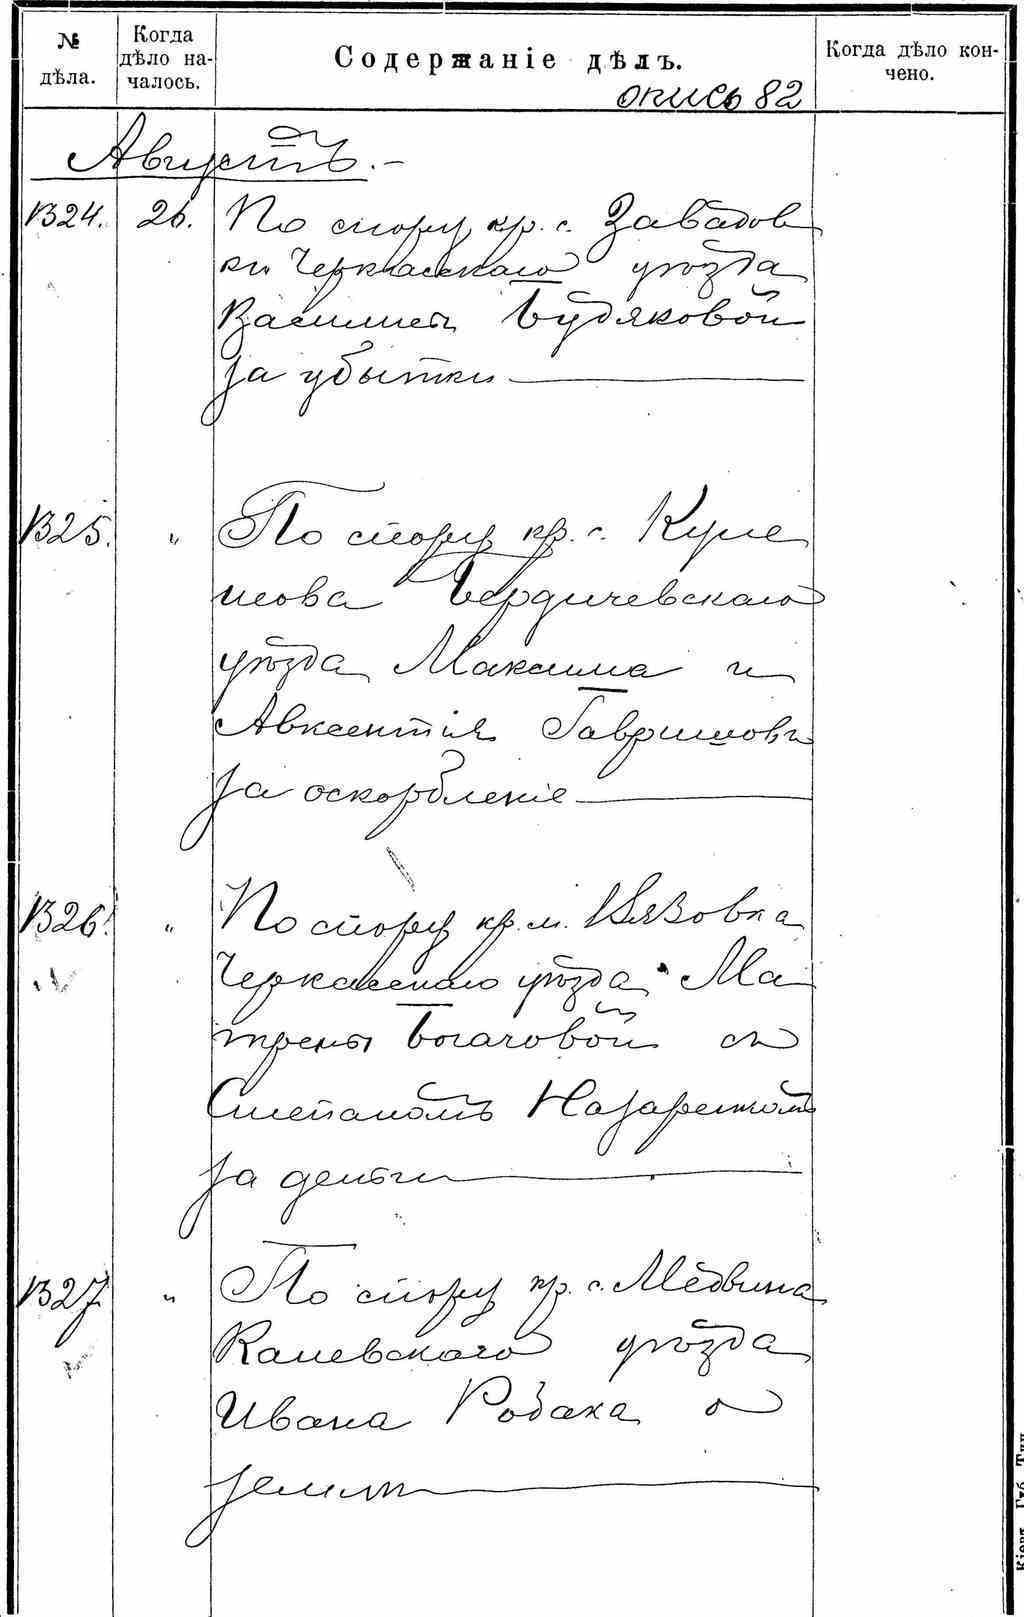 № дѣла.
Когда дѣло началось.
Содержаніе дѣлъ.
Когда дѣло кончено.
опись 82
Августъ.
1324. 26. По спору кр. с. Завадов
ки Черкасскаго уѣзда
Василисы Будяковой
за убытки
1325. " По спору кр. с.
Бердичевскаго
уѣзда Максима и
Авксентия Гавришовъ
за оскорбленіе
1326. " По спору кр. м. Вязовка
Черкасскаго уѣзда Ма
трены Богачовой съ
Степаномъ Назаренкомъ
за деньги
1327 " По спору кр. с. Медвина
Каневскаго уѣзда
Ивана Родака о
землѣ